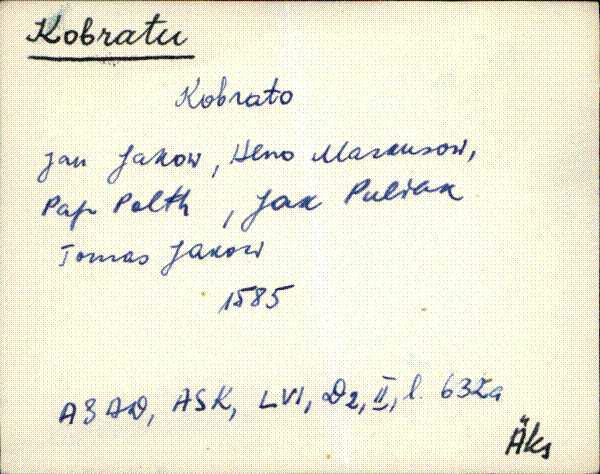 Kobratu
Kobrato
Jan Jakow, Heno Markusow,
Pap Polth, Jak Puliak
Tomas Jakow
1585
ASAD, ASK, LVI, D2, II, l. 632a
Äks